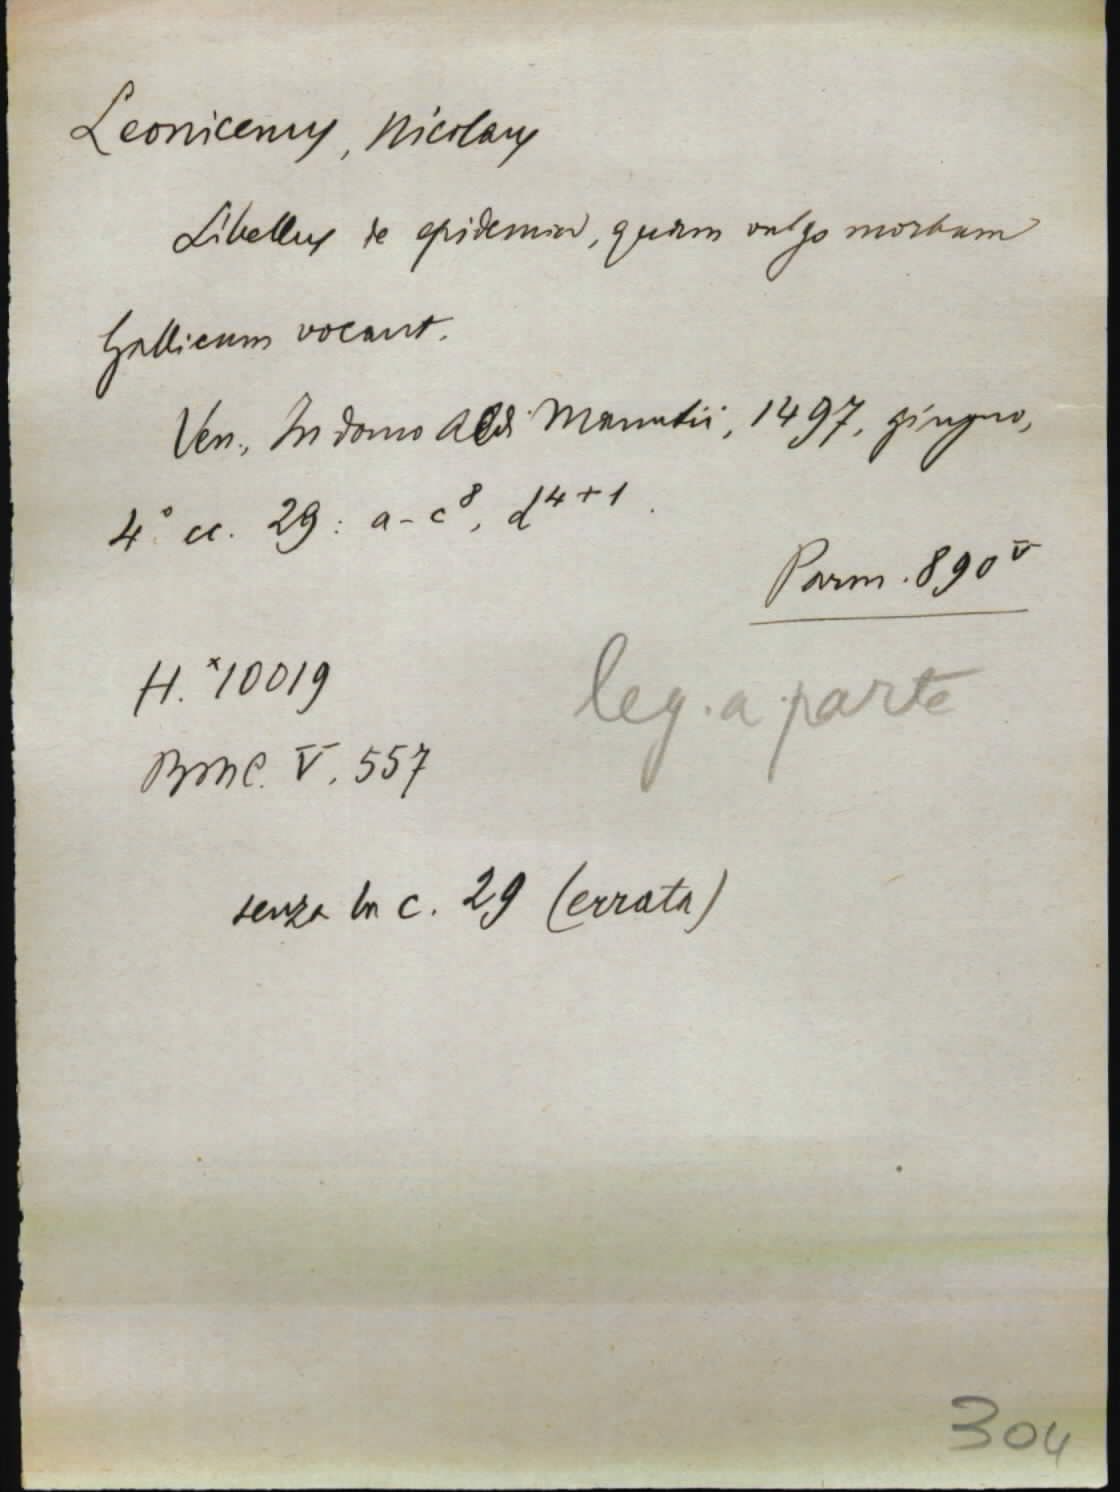 Leonicenus, Nicolaus
Libellus de epidemia, quam vulgo morbum
Gallicum vocant.
Ven., In domo Aldi Manutii, 1497, giugno,
4° cc. 29: a-c⁸, d⁴⁺¹.
Parm. 890ᵛ
H. ˣ10019
leg. a parte
BMC. V. 557
senza la c. 29 (errata)
304